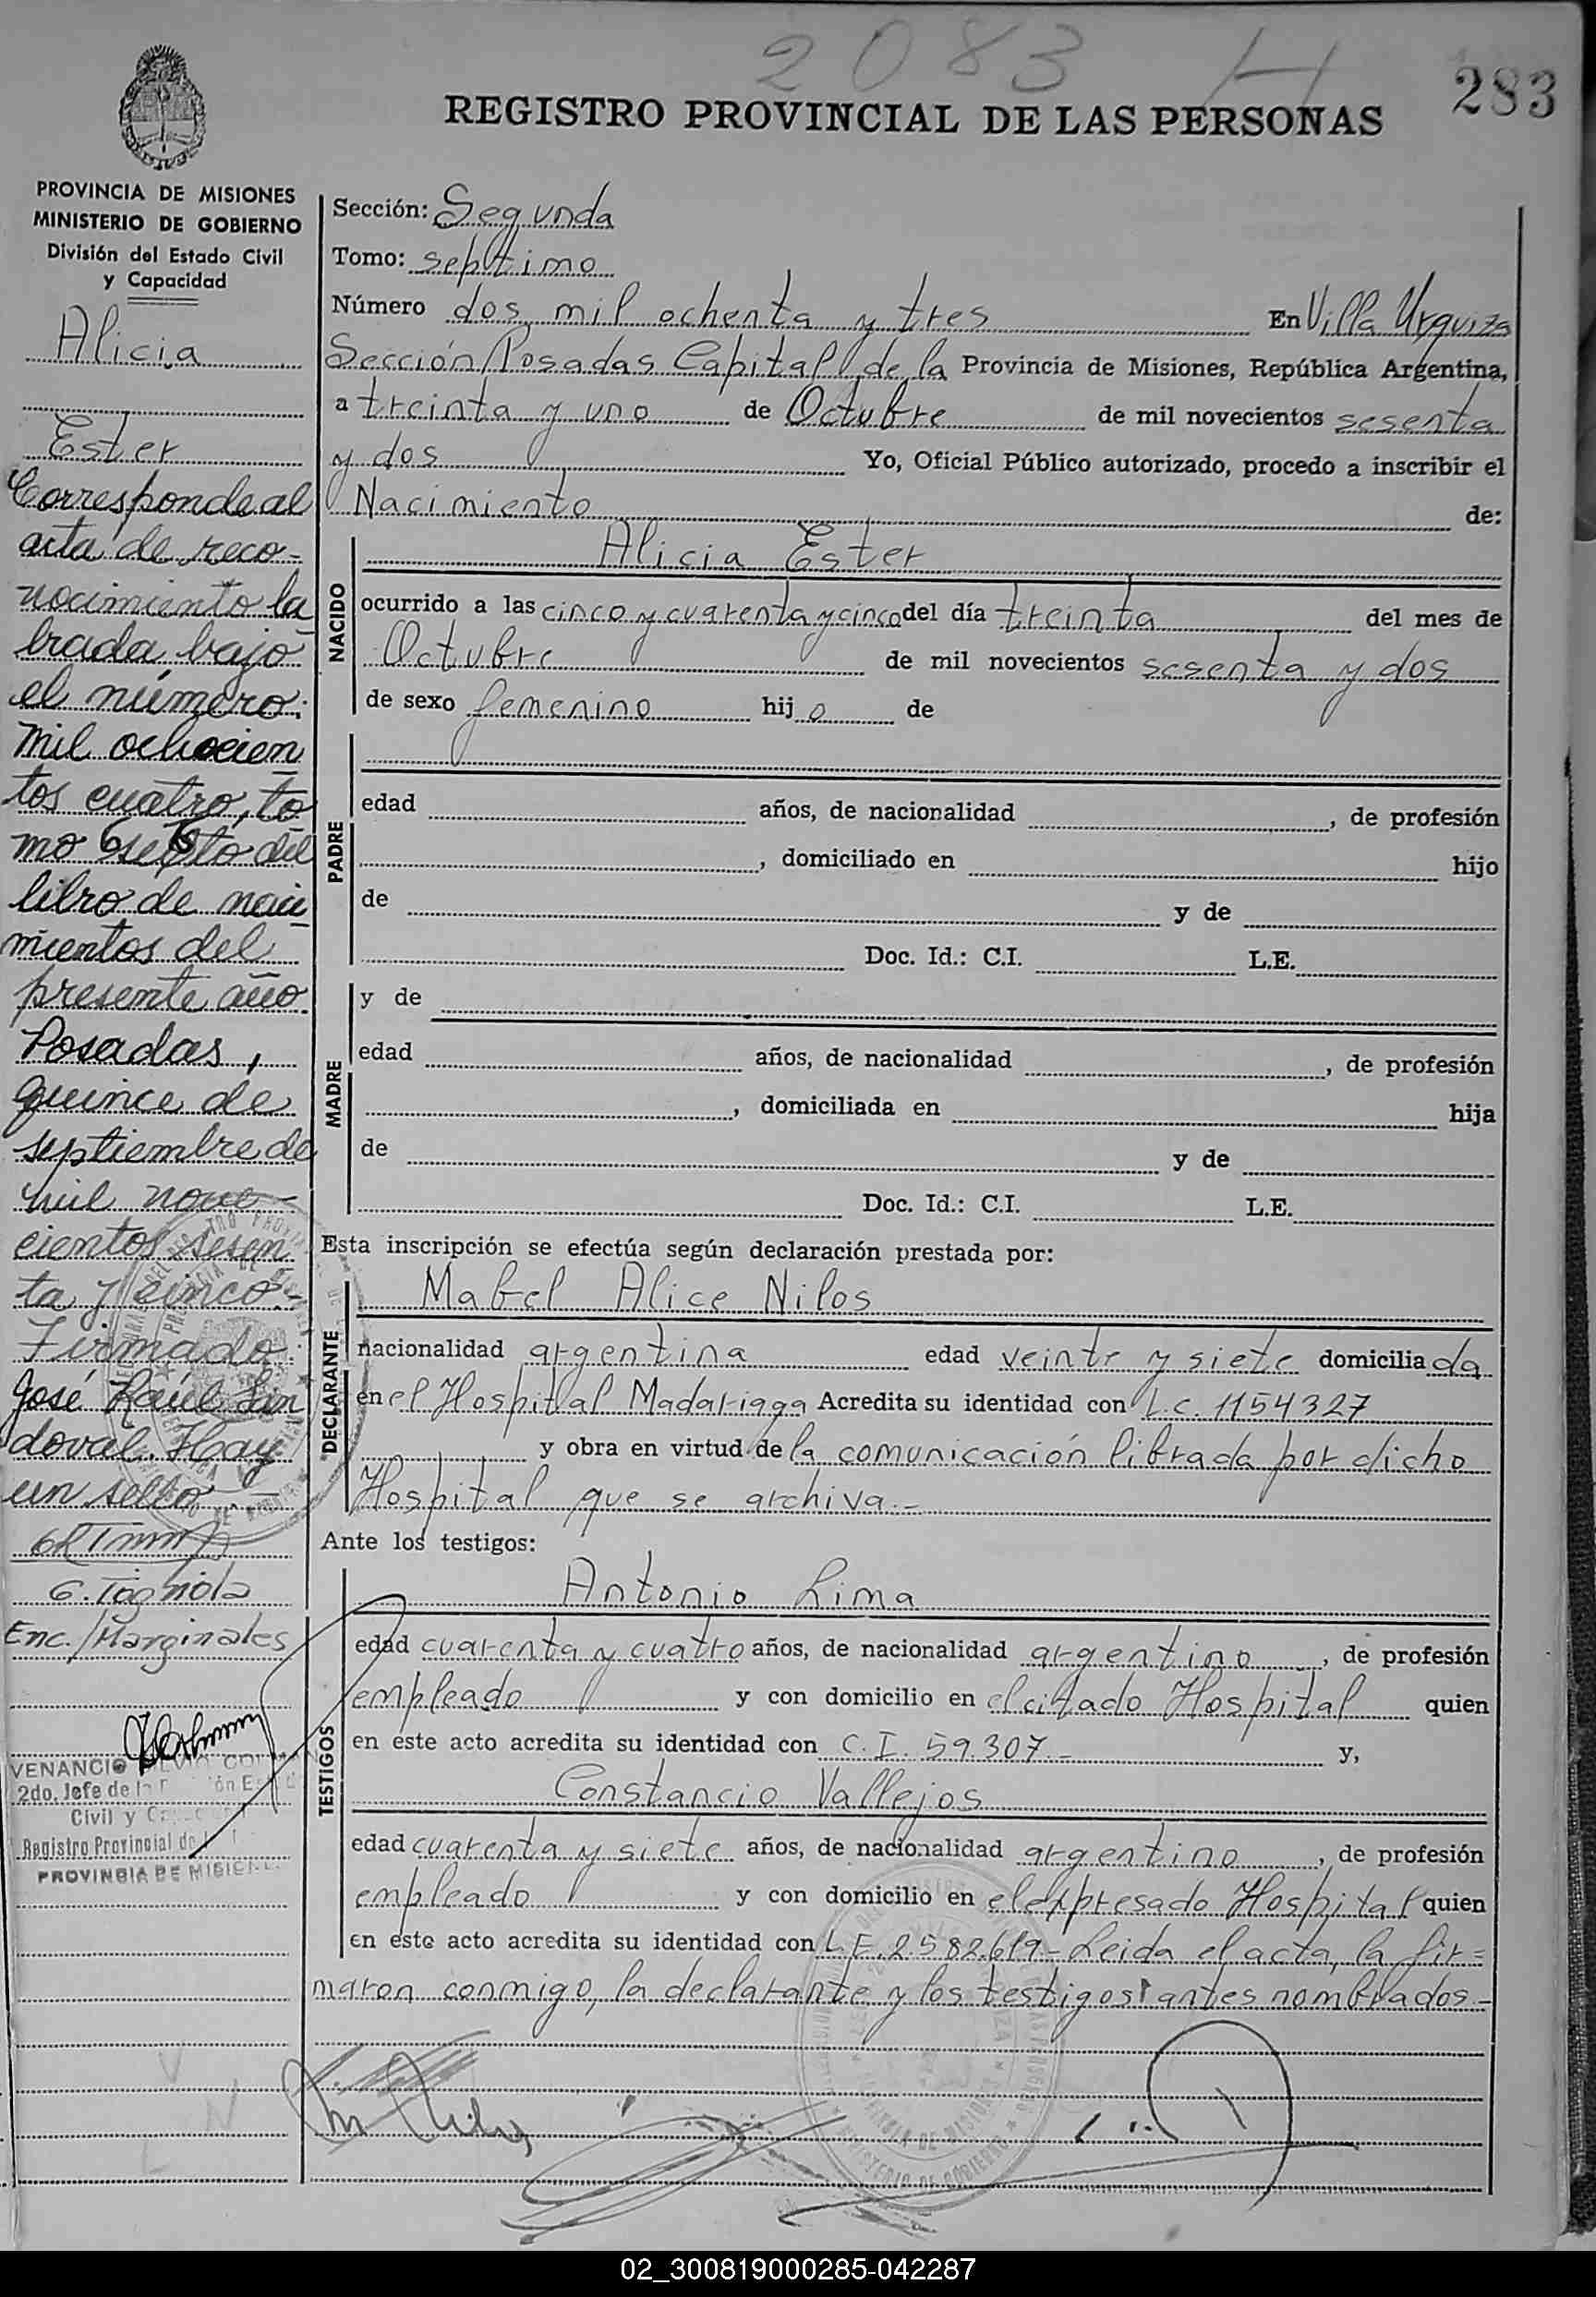 2083 H
283
REGISTRO PROVINCIAL DE LAS PERSONAS
PROVINCIA DE MISIONES
MINISTERIO DE GOBIERNO
División del Estado Civil
y Capacidad
Alicia
Ester
Corresponde al
acta de reco-
nocimiento la
brada bajo
el número:
mil ochocien
tos cuatro, to
mo sexto del
libro de naci
mientos del
presente año.
Posadas,
quince de
septiembre de
mil nove-
cientos sesen
ta y cinco.-
Firmado:
José Raúl San
doval. Hay
un sello
G. Tognola
Enc./Marginales
VENANCIO
2do. Jefe de la
Civil y
Registro Provincial de
PROVINCIA DE MISIONES
Sección: Segunda
Tomo: septimo
Número dos mil ochenta y tres En Villa Urquiza
Sección/Posadas Capital, de la Provincia de Misiones, República Argentina,
a treinta y uno de Octubre de mil novecientos sesenta
y dos Yo, Oficial Público autorizado, procedo a inscribir el
Nacimiento de:
NACIDO
Alicia Ester
ocurrido a las cinco y cuarenta y cinco del día treinta del mes de
Octubre de mil novecientos sesenta y dos
de sexo femenino hij o de
PADRE
edad años, de nacionalidad , de profesión
, domiciliado en hijo
de y de
Doc. Id.: C.I. L.E.
MADRE
y de
edad años, de nacionalidad , de profesión
, domiciliada en hija
de y de
Doc. Id.: C.I. L.E.
Esta inscripción se efectúa según declaración prestada por:
DECLARANTE
Mabel Alice Nilos
nacionalidad argentina edad veinte y siete domicilia da
en el Hospital Madariaga Acredita su identidad con L.C. 1154327
y obra en virtud de la comunicación librada por dicho
Hospital que se archiva.-
Ante los testigos:
TESTIGOS
Antonio Lima
edad cuarenta y cuatro años, de nacionalidad argentino , de profesión
empleado y con domicilio en el citado Hospital quien
en este acto acredita su identidad con C.I. 59.307.- y,
Constancio Vallejos
edad cuarenta y siete años, de nacionalidad argentino , de profesión
empleado y con domicilio en el expresado Hospital quien
en este acto acredita su identidad con L.E. 2.582.619- Leida el acta, la fir=
maron conmigo, la declarante y los testigos antes nombrados.-
02_300819000285-042287